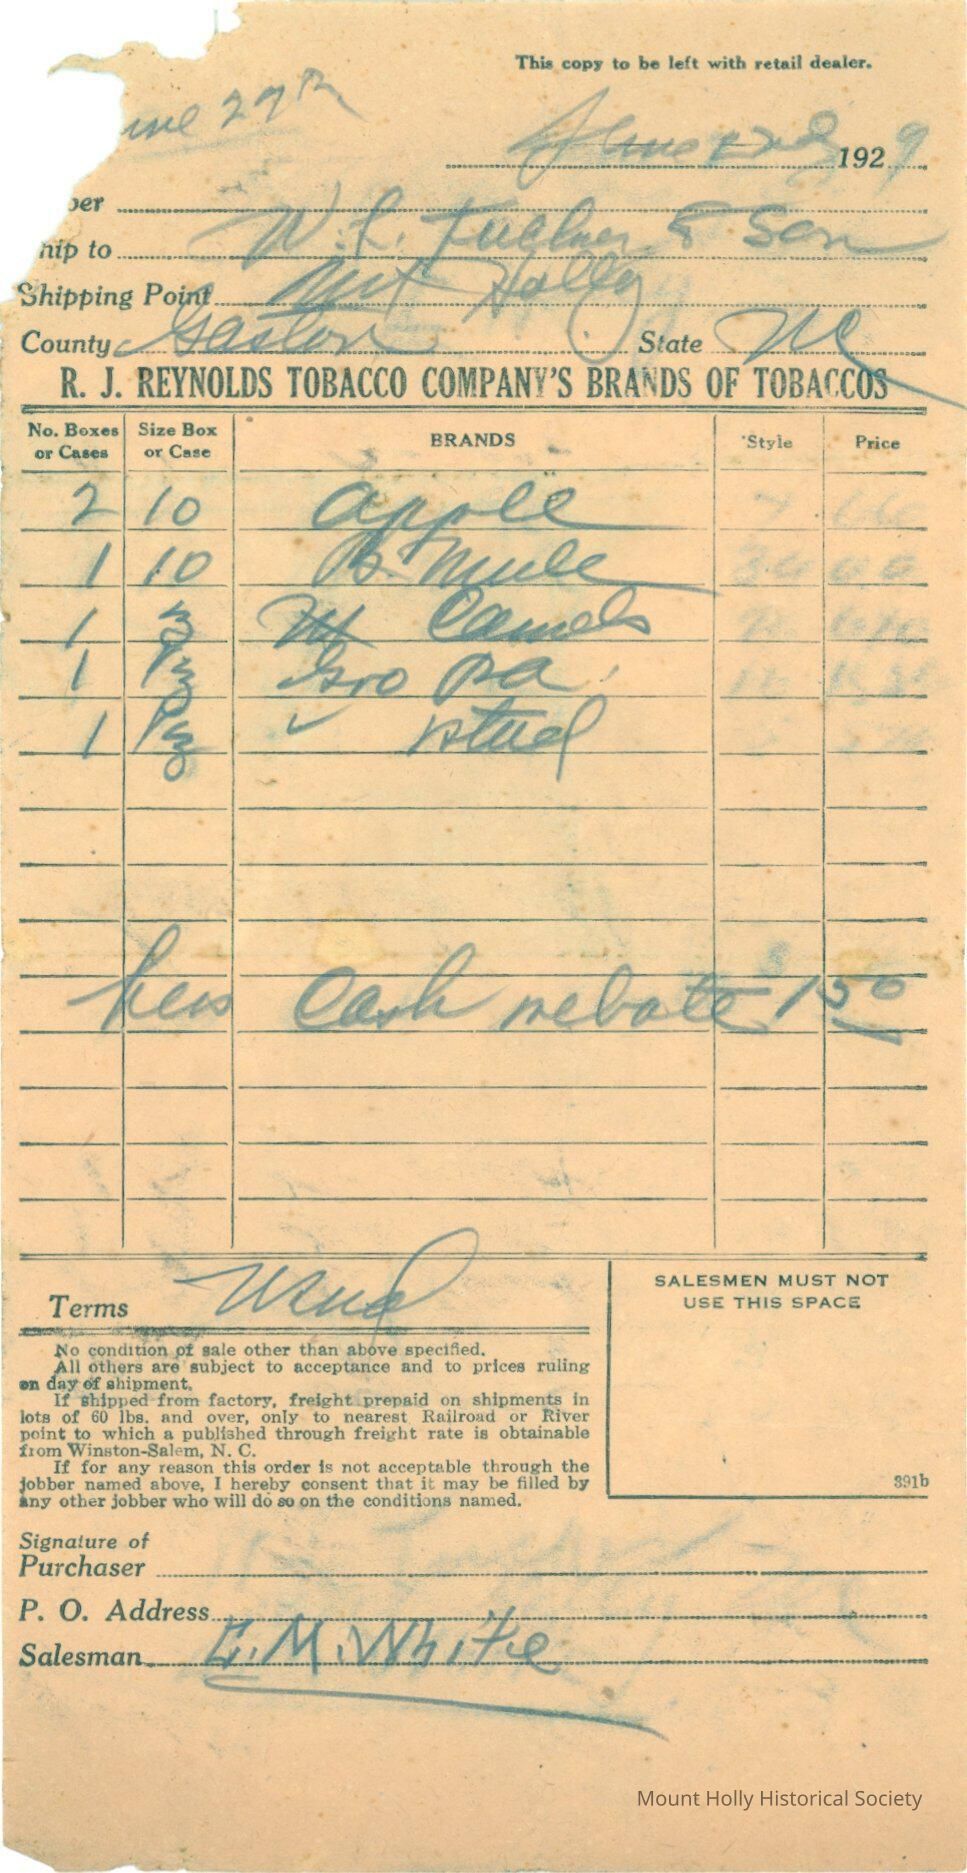 This copy to be left with retail dealer.
27th
1929
ber
hip to W. L. & Son
Shipping Point Mt Holly
County Gaston State NC
R. J. REYNOLDS TOBACCO COMPANY'S BRANDS OF TOBACCOS
No. Boxes or Cases Size Box or Case BRANDS Style Price
2 10 apple
1 10 B. Mule
1 Camels
1 Geo Pa
1
Less Cash rebate 1 50
Terms
SALESMEN MUST NOT
USE THIS SPACE
No condition of sale other than above specified.
All others are subject to acceptance and to prices ruling
on day of shipment.
If shipped from factory, freight prepaid on shipments in
lots of 60 lbs. and over, only to nearest Railroad or River
point to which a published through freight rate is obtainable
from Winston-Salem, N. C.
If for any reason this order is not acceptable through the
jobber named above, I hereby consent that it may be filled by
any other jobber who will do so on the conditions named.
391b
Signature of
Purchaser
P. O. Address
Salesman E. M. White
Mount Holly Historical Society